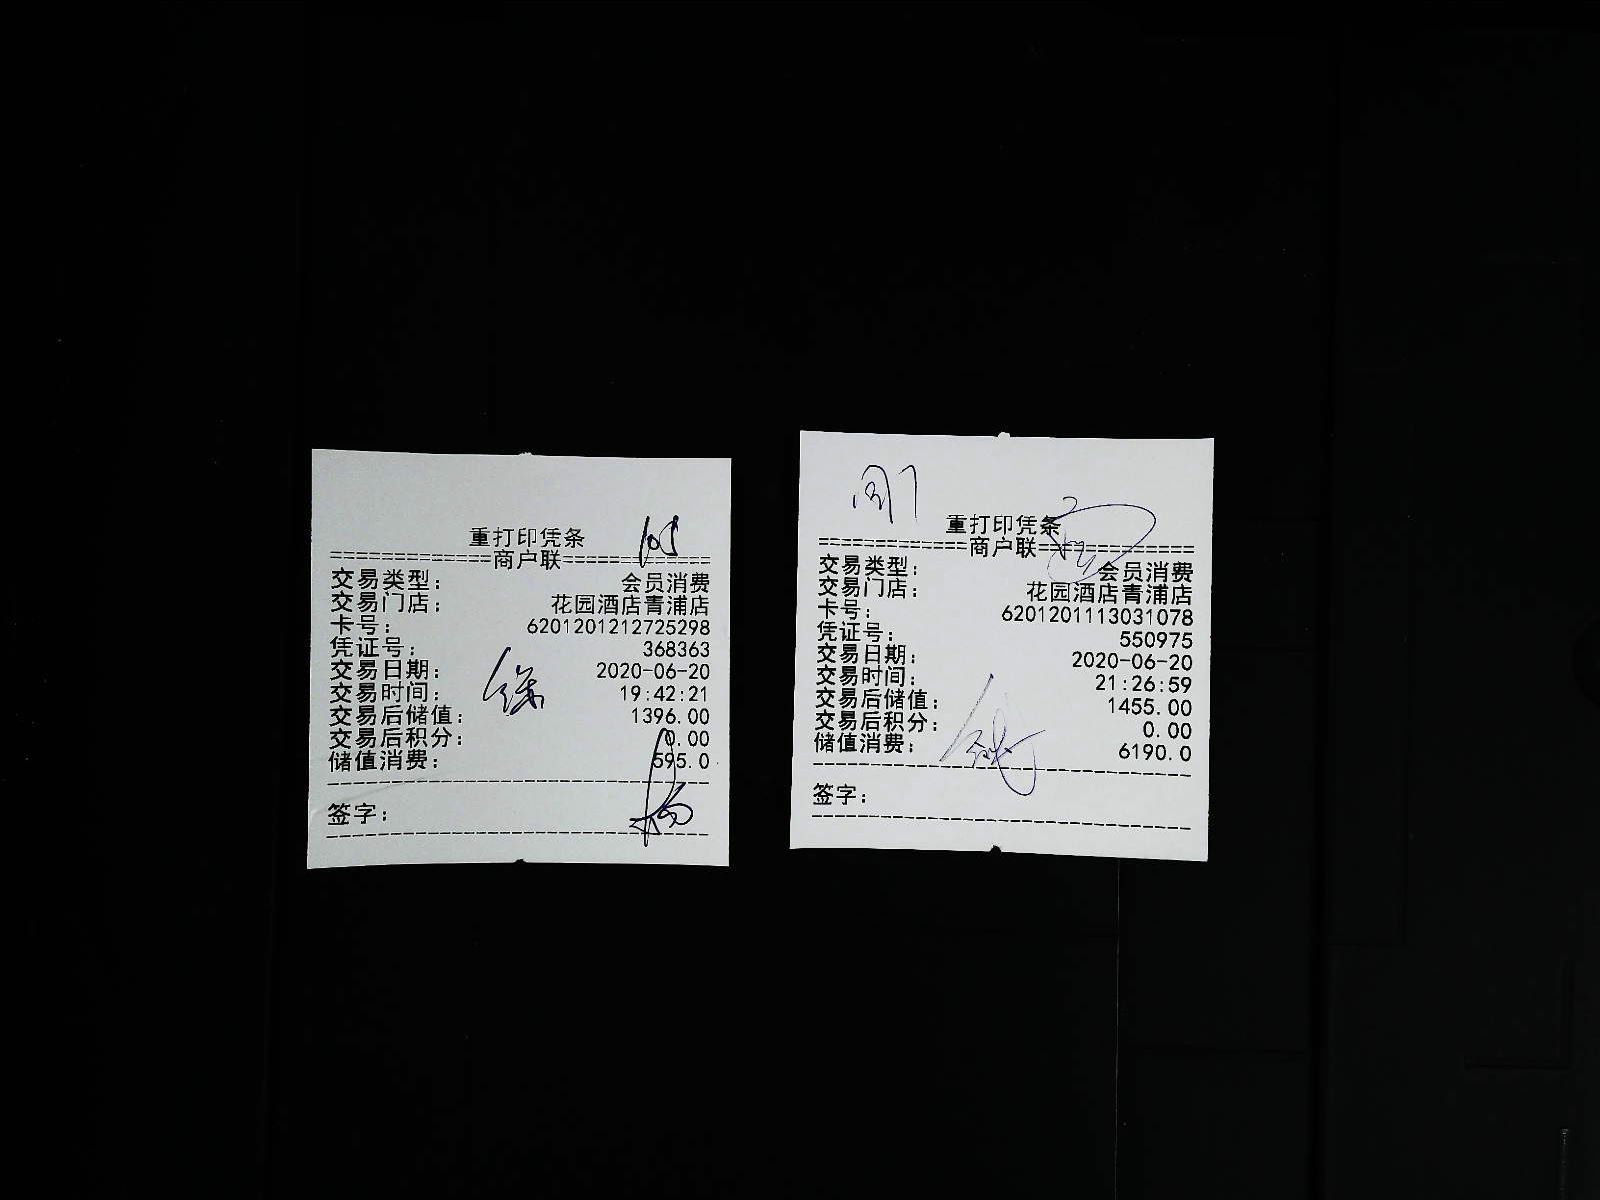 重打印凭条
================商户联================
交易类型: 会员消费
交易门店: 花园酒店青浦店
卡号: 6201201212725298
凭证号: 368363
交易日期: 2020-06-20
交易时间: 19:42:21
交易后储值: 1396.00
交易后积分: 0.00
储值消费: 595.0
签字:
刚
重打印凭条
================商户联================
交易类型: 会员消费
交易门店: 花园酒店青浦店
卡号: 6201201113031078
凭证号: 550975
交易日期: 2020-06-20
交易时间: 21:26:59
交易后储值: 1455.00
交易后积分: 0.00
储值消费: 6190.0
签字: